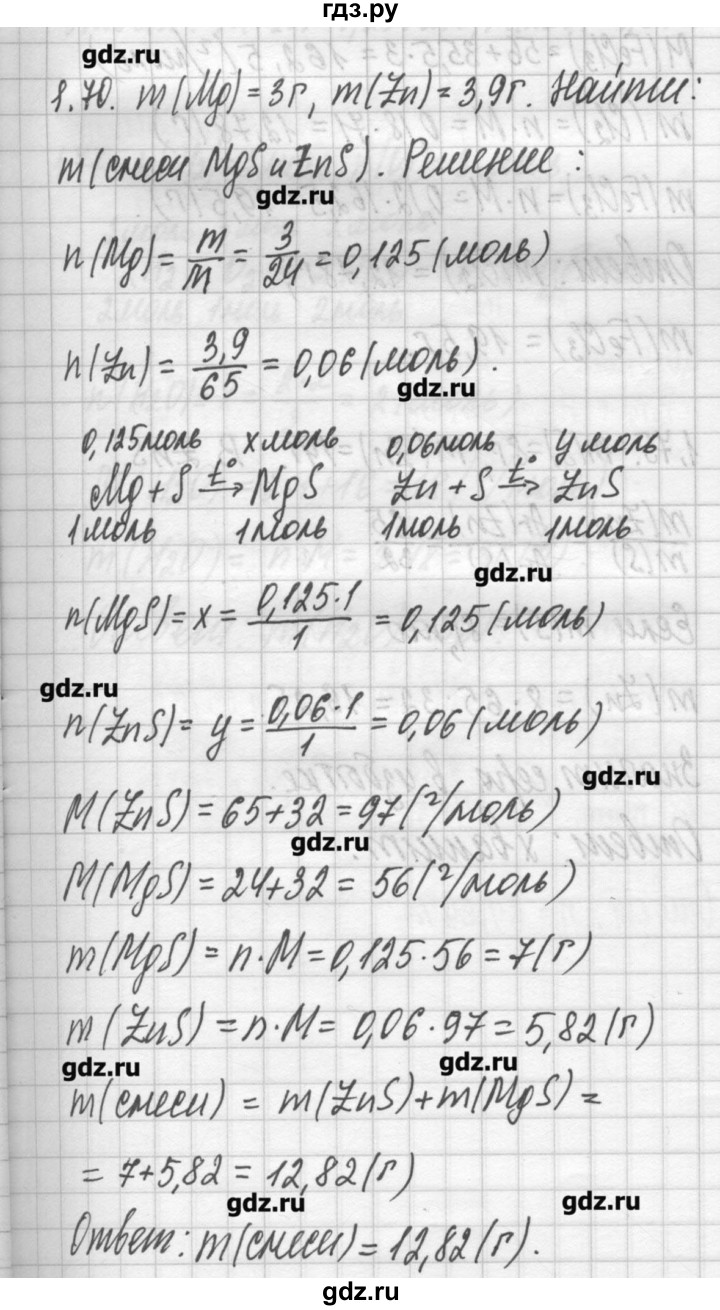 гдз.ру
gdz.ru
1.70. m(Mg)=3г, m(Zn)=3,9г. Найти:
m(смеси MgS и ZnS). Решение:
gdz.ru
n(Mg)= m/M = 3/24 = 0,125(моль)
n(Zn)= 3,9/65 = 0,06(моль).
gdz.ru
0,125моль x моль 0,06моль y моль
Mg+S t°→ MgS Zn+S t°→ ZnS
1моль 1моль 1моль 1моль
gdz.ru
n(MgS)=x= 0,125·1/1 = 0,125(моль)
gdz.ru
n(ZnS)= y= 0,06·1/1 = 0,06(моль)
gdz.ru
M(ZnS)=65+32=97(г/моль)
gdz.ru
M(MgS)=24+32= 56(г/моль)
m(MgS)=n·M=0,125·56=7(г)
m(ZnS)=n·M= 0,06·97=5,82(г)
gdz.ru gdz.ru
m(смеси) = m(ZnS)+m(MgS)=
= 7+5,82=12,82(г)
gdz.ru gdz.ru
Ответ: m(смеси)=12,82(г).
gdz.ru